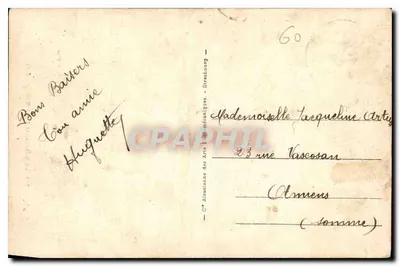 60
Bons Baisers
Ton amie
Huguette
Cie Alsacienne des Arts Photomécaniques - Strasbourg
CPAPHIL
Mademoiselle Jacqueline Artus
23 rue Vascosan
Amiens
(Somme)